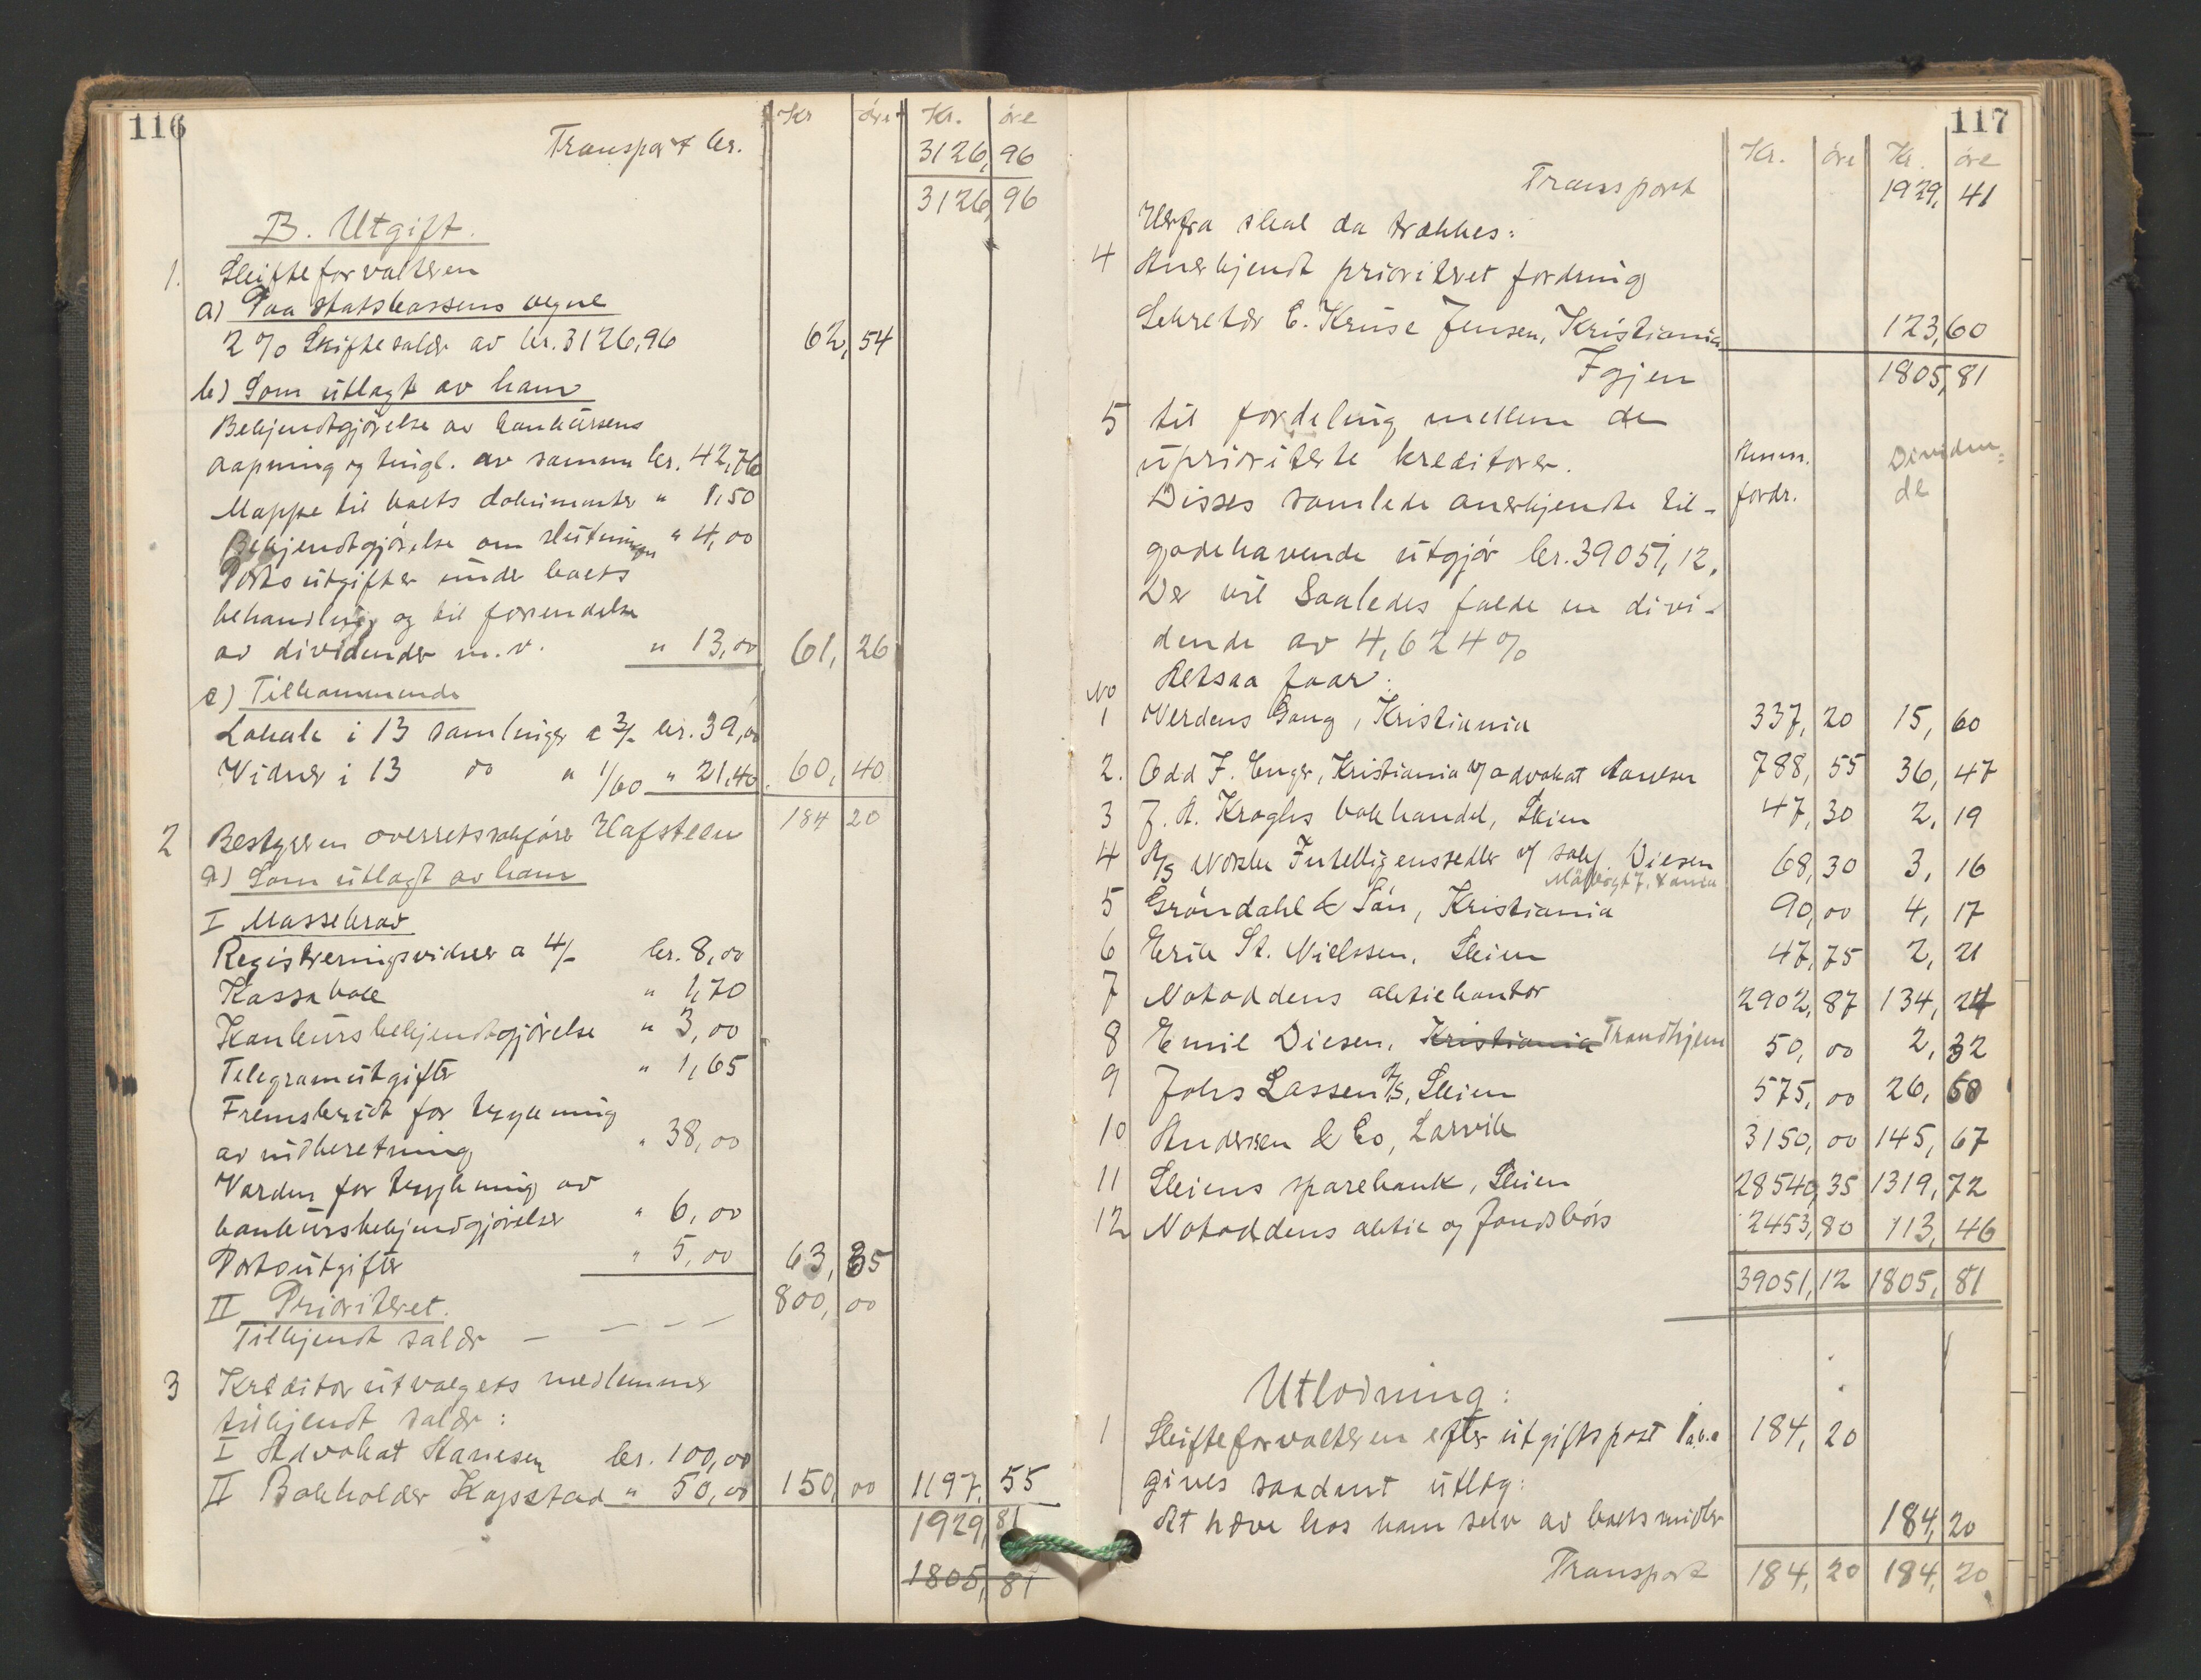 116
Kr øre Kr. øre
Transport kr. 3126,96
3126,96
B. Utgift.
1. Skifteforvalteren
a) Paa statskassens vegne
2 % Skiftesalær av kr. 3126,96 62,54
b) Som utlagt av ham
Bekjendtgjørelse av konkursens
aapning og tingl. av samme kr. 42,76
Mappe til boets dokumenter " 1,50
Bekjendtgjørelse om slutningen " 4,00
Portoutgifter under boets
behandling og til forsendelse
av dividender m.v. " 13,00 61,26
c) Tilkommende
Lokale i 13 samlinger a 3/- kr. 39,00
Vidner i 13 do " 1/60 " 21,40 60,40
184 20
2 Bestyreren overretssakfører Hafsteen
a) Som utlagt av ham
I Massekrav
Registreringsvidner a 4/- kr. 8,00
Kassabok " 1,70
Konkursbekjendtgjørelse " 3,00
Telegramutgifter " 1,65
Fremskridt for trykning
av indberetning " 38,00
Varden for trykning av
konkursbekjendtgjørelser " 6,00
Portoutgifter " 5,00 63,35
II Prioritert. 800,00
Tilkjendt salær — — — —
3 Kreditorutvalgets medlemmer
tilkjendt salær:
I Advokat Hansen kr. 100,00
II Bokholder Kopstad " 50,00 150,00 1197,55
1929,81
1805,81
117
Kr. øre Kr. øre
Transport 1929,41
Herfra skal da trækkes:
4 Anerkjendt prioritert fordring
Sekretær E. Kruse Jensen, Kristiania 123,60
Igjen 1805,81
5 til fordeling mellem de
uprioriterte kreditorer. Anm. Dividen=
Disses samlede anerkjendte til- fordr. de
godehavende utgjør kr. 39051,12.
Der vil saaledes falde en divi-
dende av 4,624%
Altsaa faar:
No
1 Verdens Gang, Kristiania 337,20 15,60
2. Odd F. Enger, Kristiania v/ advokat Hansen 788,55 36,47
3 J. A. Kroghs bokhandel, Skien 47,30 2,19
4 A/S Norske Intelligenssedler v/ sakf. Diesen 68,30 3,16
5 Grøndahl & Søn, Kristiania 90,00 4,17
6 Erik St. Nielssen, Skien 47,75 2,21
7 Notoddens aktiekontor 2902,87 134,24
8 Emil Diesen, Kristiania Trondhjem 50,00 2,32
9 Johs Lassen A/S, Skien 575,00 26,60
10 Andersen & Co, Larvik 3150,00 145,67
11 Skiens sparebank, Skien 28540,35 1319,72
12 Notoddens aktie og fondsbørs 2453,80 113,46
39051,12 1805,81
Utlodning:
1 Skifteforvalteren efter utgiftspost 1 a.b.c 184,20
gives saadant utlæg:
At hæve hos ham selv av boets midler 184,20
Transport 184,20 184,20